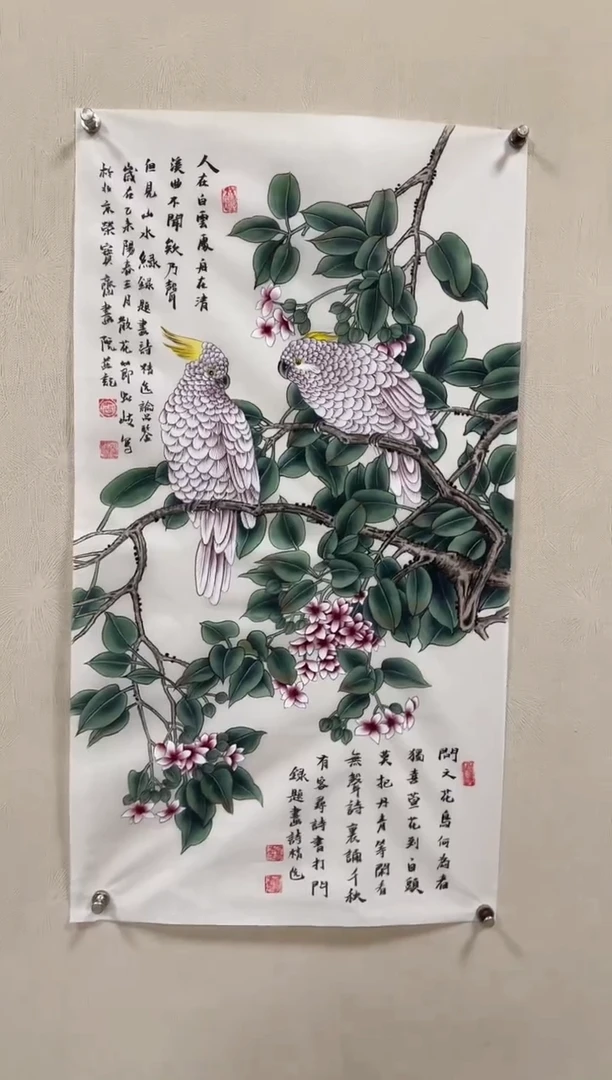 人在白雲處舟在清
溪曲不聞欸乃聲
但見山水綠錄題畫詩精选論品鉴
歲在乙未陽春三月散花節
於北京榮寶齋畫院
問之花鳥何為者
獨喜萱花到白頭
莫把丹青等閑看
無聲詩裏誦千秋
有客尋詩書打門
錄題畫詩精选